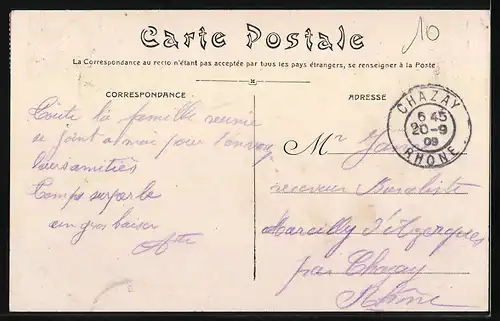 10
Carte Postale
La Correspondance au recto n'étant pas acceptée par tous les pays étrangers, se renseigner à la Poste
CORRESPONDANCE
ADRESSE
CHAZAY
6 45
20-9
09
RHONE
Toute la famille réunie
se joint a moi pour
leurs amitiés
un gros baiser
Mr
receveur Buraliste
Marcilly d'Azergues
par Chazay
Rhône